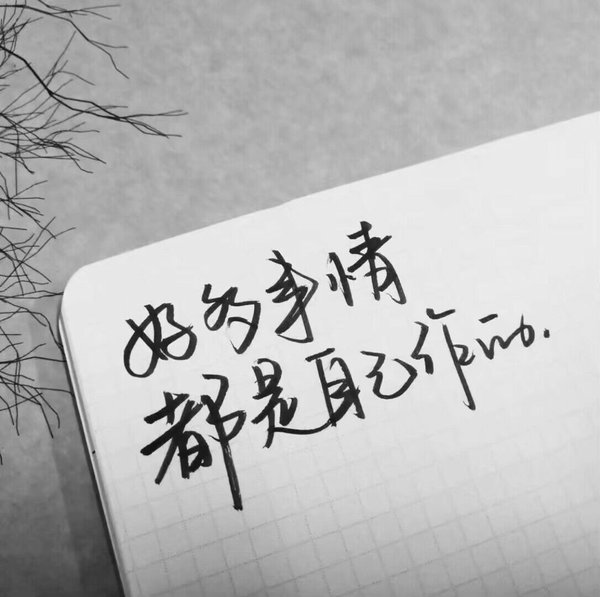 好多事情
都是自己作的.